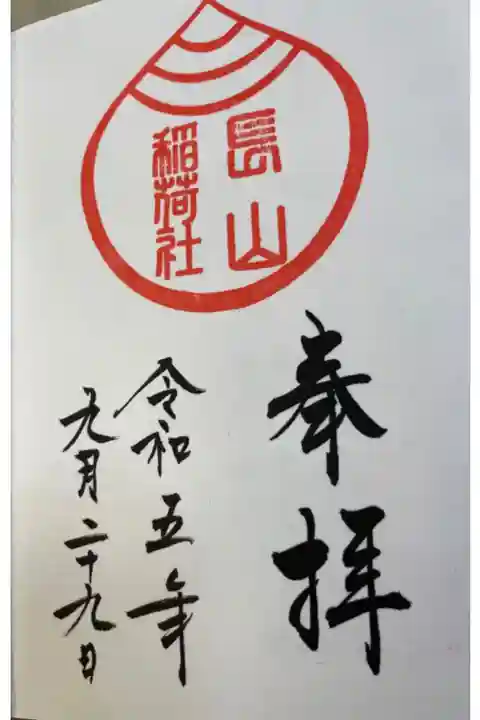 長山
稲荷社
奉拝
令和五年
九月二十九日